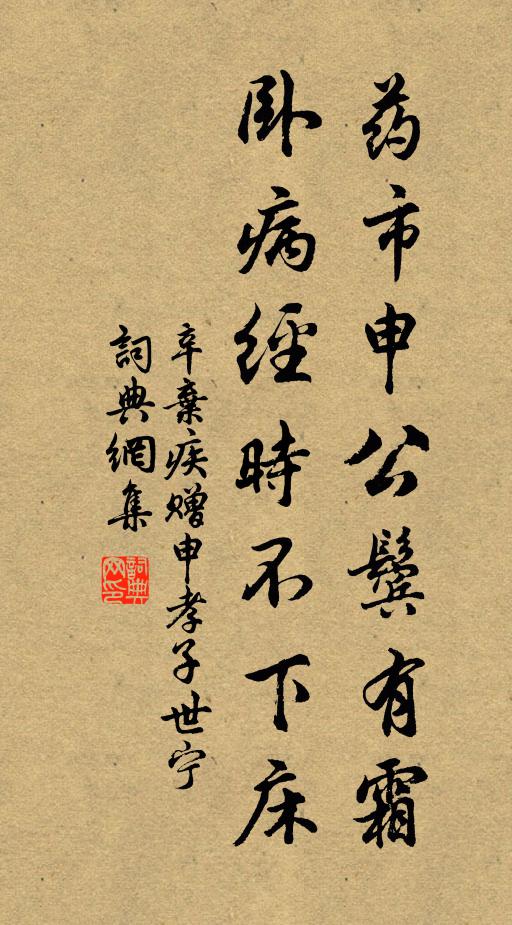 药市申公鬓有霜
卧病經時不下床
辛棄疾赠申孝子世宁
詞典網集
詞典网印